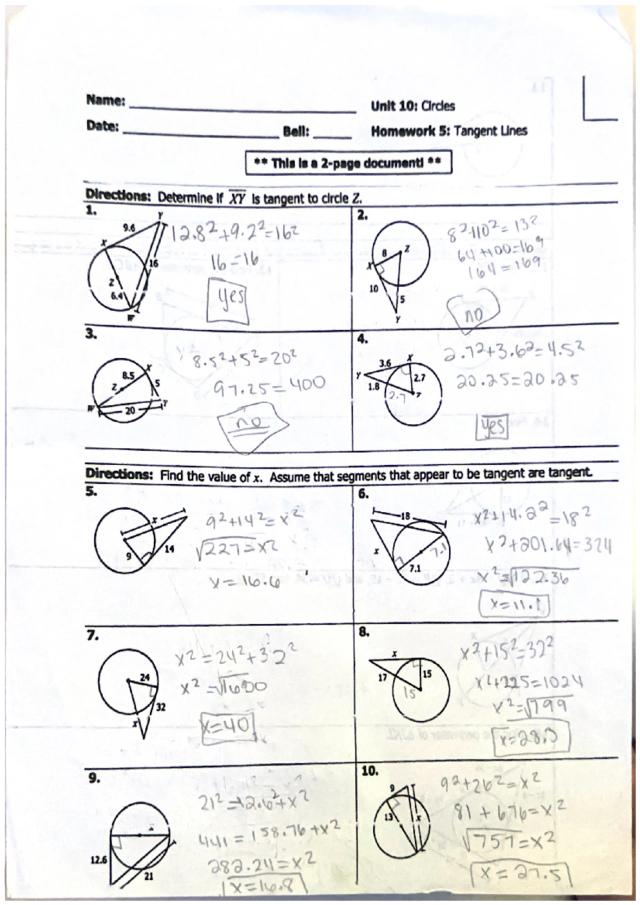 Name:
Unit 10: Circles
Date: Bell:
Homework 5: Tangent Lines
** This is a 2-page document! **
Directions: Determine if XY is tangent to circle Z.
1.
Y
9.6
X
16
Z
6.4
W
12.8²+9.2²=16²
16=16
yes
2.
8
Z
X
10
5
Y
8²+10²=13²
64+100=169
164=169
no
3.
8.5
X
Z
5
W
Y
20
8.5²+5²=20²
97.25=400
no
4.
3.6
X
Y
2.7
1.8
2.7
Z
2.7²+3.6²=4.5²
20.25=20.25
yes
Directions: Find the value of x. Assume that segments that appear to be tangent are tangent.
5.
x
9
14
9²+14²=x²
√227=x²
x=16.6
6.
18
x
7.1
7.1
x²+14.2²=18²
x²+201.64=324
x²=√122.36
x=11.1
7.
24
32
x
x²=24²+32²
x²=√1600
x=40
8.
x
17
15
15
x²+15²=32²
x²+225=1024
x²=√799
x=28.3
9.
12.6
21
21²=12.6²+x²
441=158.76+x²
282.24=x²
x=16.8
10.
9
13
x
9²+26²=x²
81+676=x²
√757=x²
x=27.5